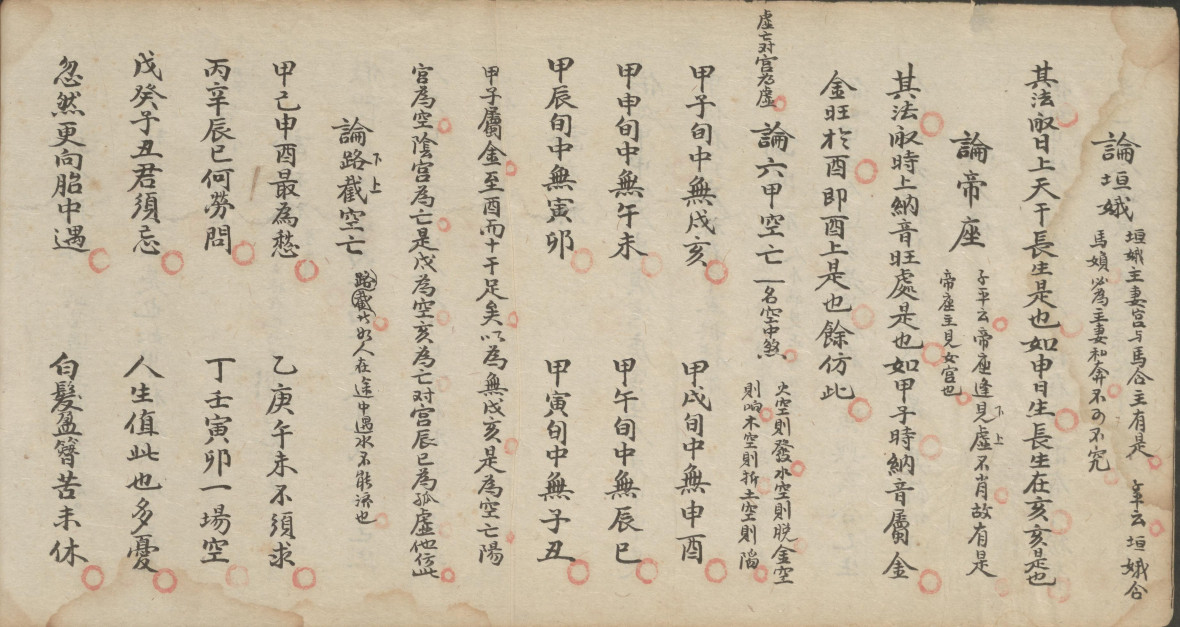 論垣娥
垣娥主妻宮与馬合主有是
年云垣娥合
馬頍必為主妻和弇不可不究
其法取日上天干長生是也如申日生長生在亥亥是也
論帝座
子平云帝座逢見虛不肖故有是
下上
帝座主見女官也
其法取時上納音旺處是也如甲子時納音屬金
金旺於酉即酉上是也餘仿此
虛亡对官为虛
論六甲空亡
一名空中煞
火空則發水空則脱金空
則响木空則折土空則陷
甲子旬中無戌亥
甲戌旬中無申酉
甲申旬中無午未
甲午旬中無辰巳
甲辰旬中無寅卯
甲寅旬中無子丑
甲子屬金至酉而十干足矣以為無戌亥是為空亡陽
宮為空陰宮為亡是戌為空亥為亡对宮辰巳為孤虛他仿此
論路截空亡
下上
路截者如人在途中遇水不能済也
甲己申酉最為愁
乙庚午未不須求
丙辛辰巳何勞問
丁壬寅卯一場空
戊癸子丑君須忌
人生值此也多憂
忽然更向胎中遇
白髮盈簪苦未休